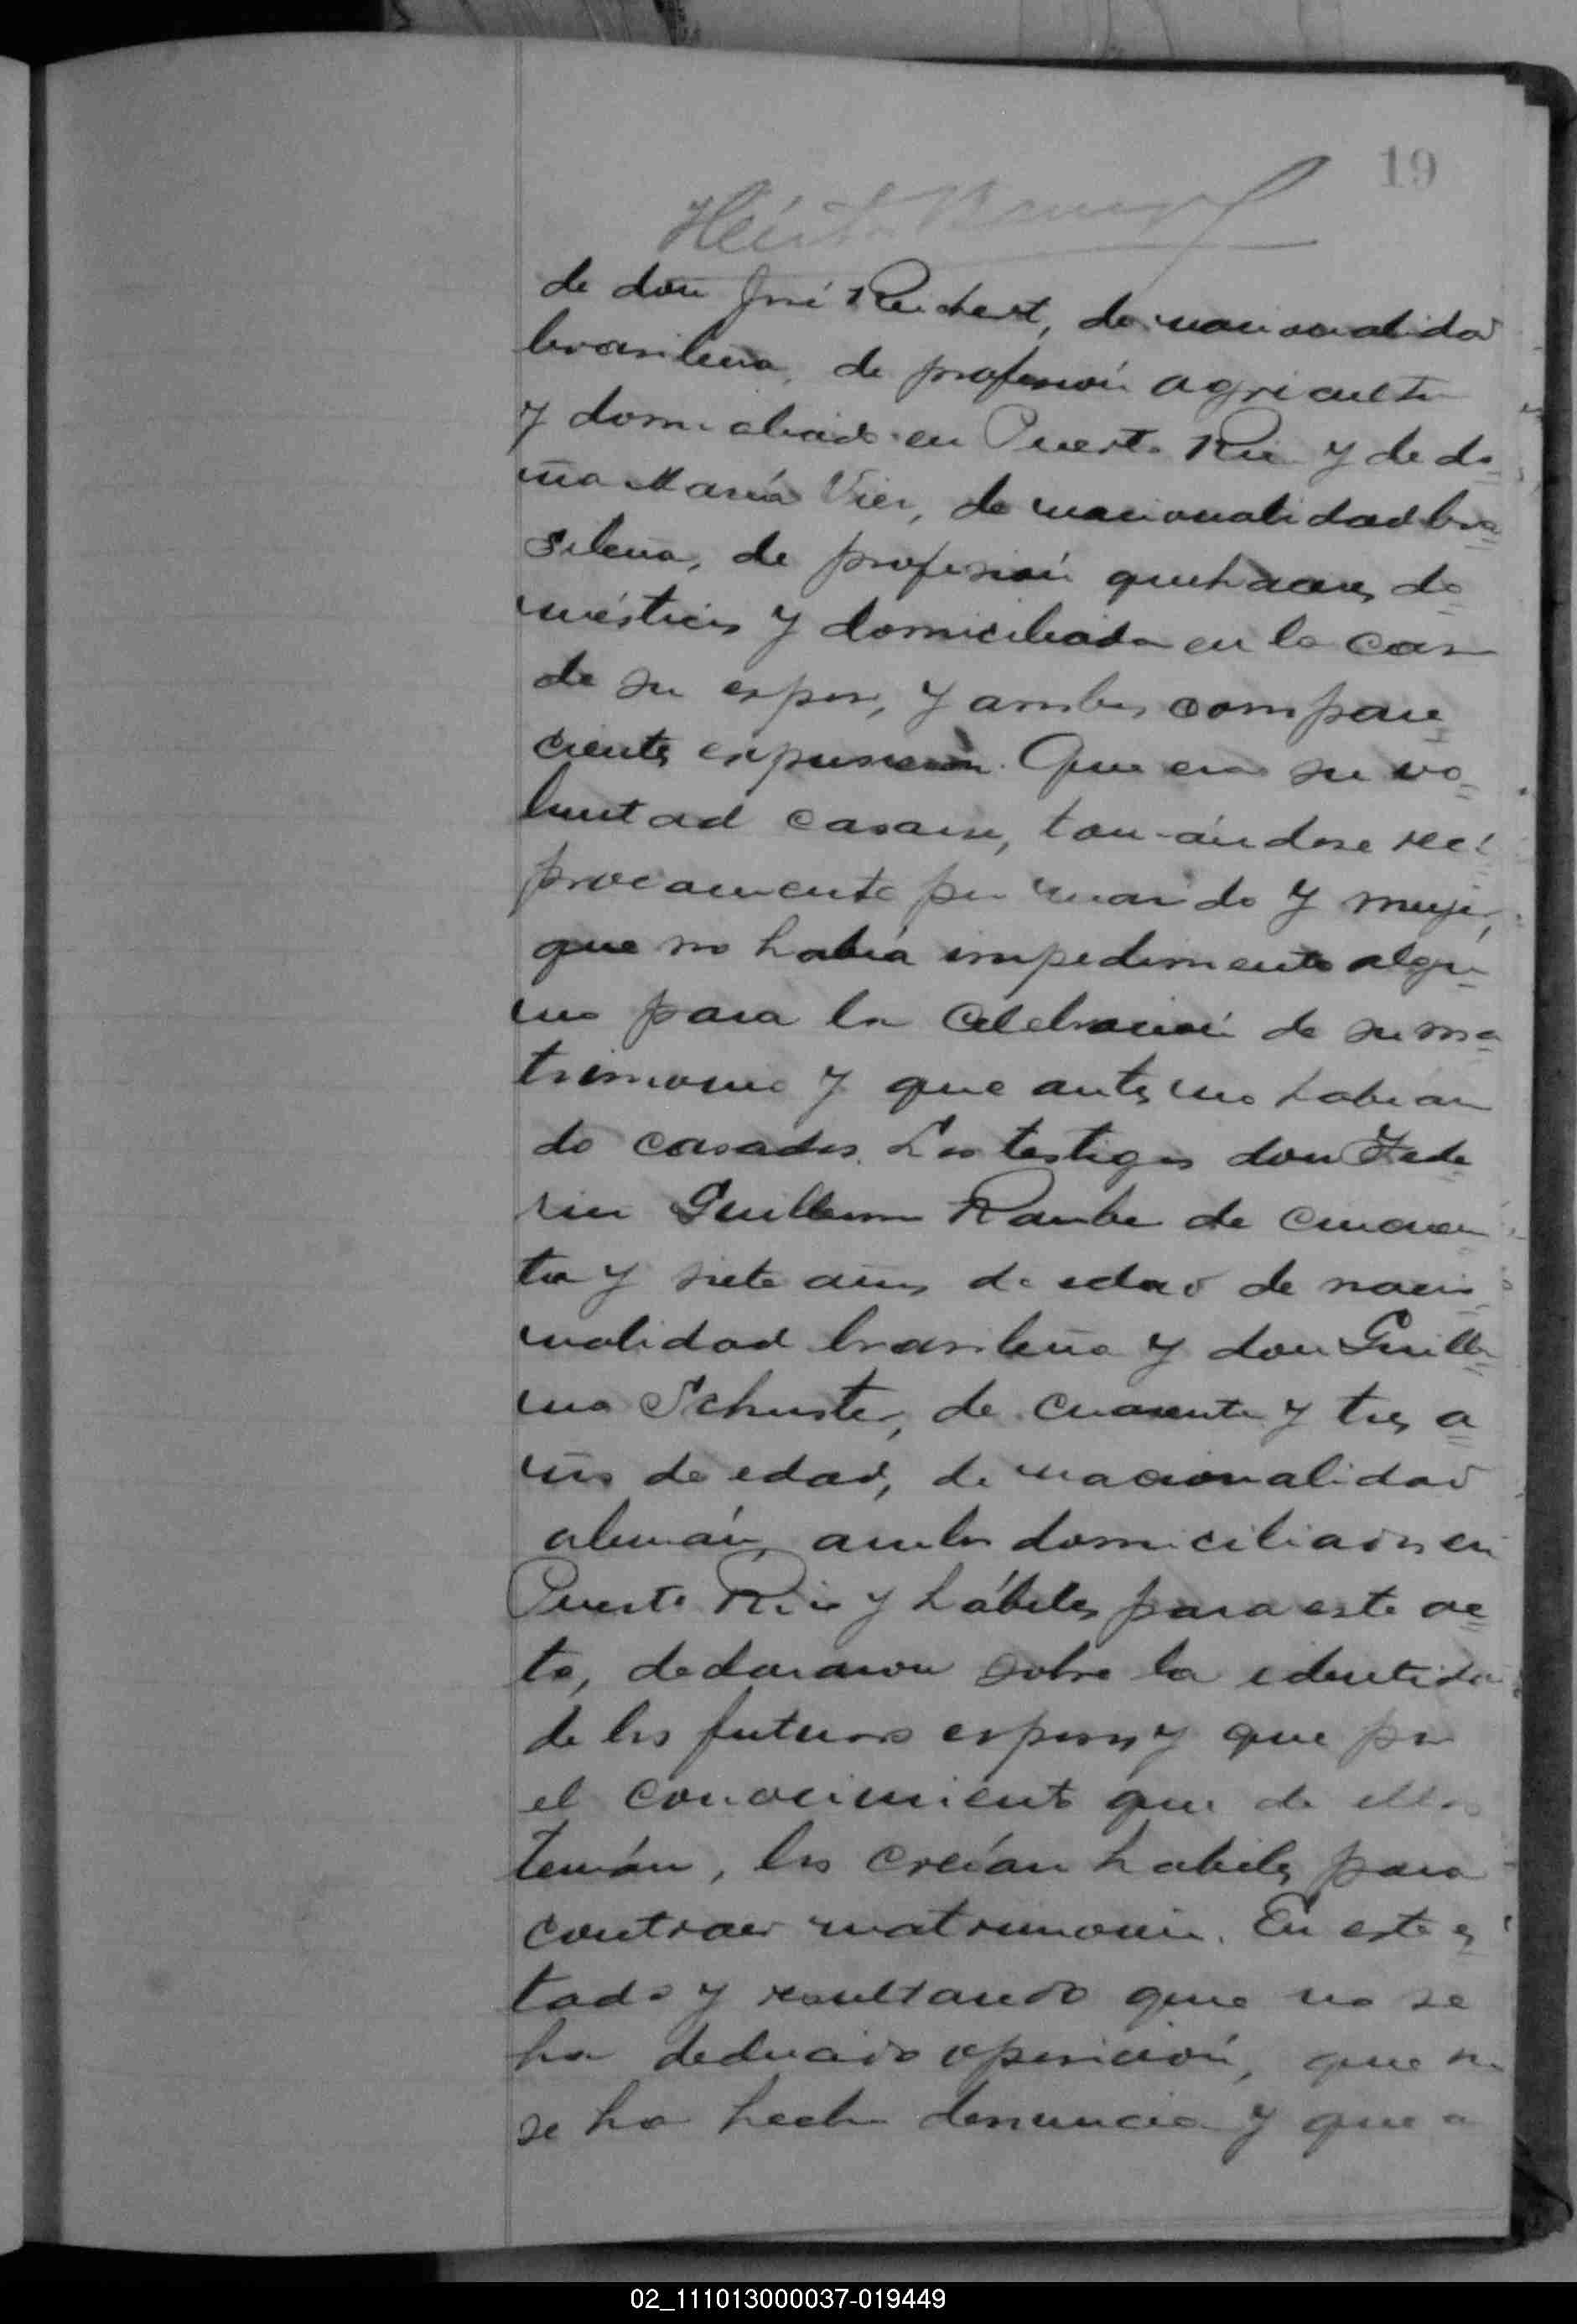 19
de don José Reichert, de nacionalidad
brasileña, de profesión agricultor
y domiciliado en Puerto Rico y de do-
ña María Vier, de nacionalidad bra=
sileña, de profesión quehaceres do-
mésticos y domiciliada en la casa
de su esposo, y ambos compare-
cientes expusieron: Que era su vo=
luntad casarse, tomándose recí
procamente por marido y mujer,
que no había impedimento algu-
no para la celebración de su ma=
trimonio y que antes no habían
do casados. Los testigos don Fede
rico Guillermo Raube de cincuen
ta y siete años de edad de nacio-
nalidad brasileña y don Guiller=
mo Schuster, de cuarenta y tres a=
ños de edad, de nacionalidad
alemán, ambos domiciliados en
Puerto Rico y hábiles para este ac=
to, declararon sobre la identidad
de los futuros esposos y que por
el conocimiento que de ellos
tenían, los creían habiles para
contraer matrimonio. En este es
tado y resultando que no se
ha deducido oposición, que no
se ha hecho denuncia y que a
02_111013000037-019449